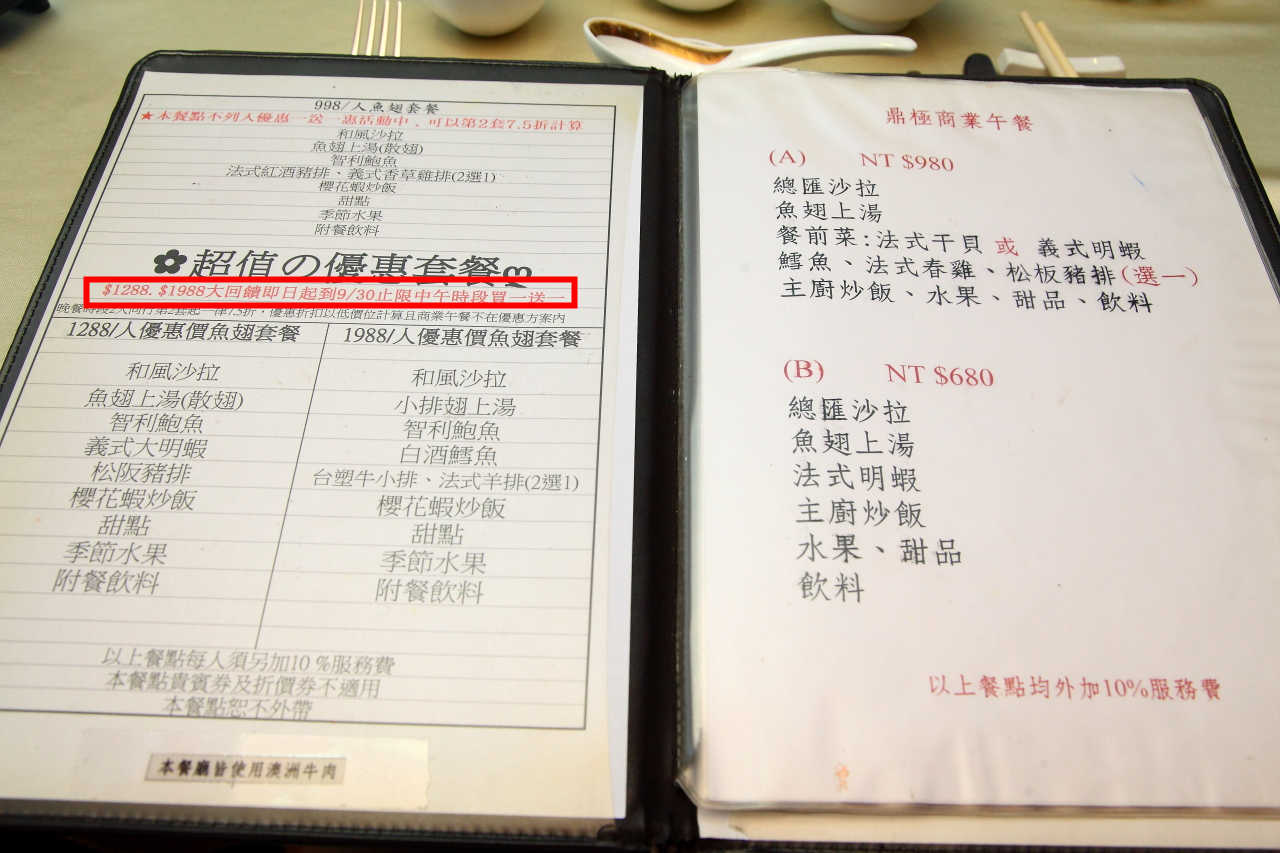 998/人魚翅套餐
★本餐點不列入優惠一送一惠活動中、可以第2套7.5折計算
和風沙拉
魚翅上湯(散翅)
智利鮑魚
法式紅酒豬排、義式香草雞排(2選1)
櫻花蝦炒飯
甜點
季節水果
附餐飲料
超值の優惠套餐
$1288. $1988大回饋即日起到9/30止限中午時段買一送一
晚餐時段2人同行第2套起一律7.5折，優惠折扣以低價位計算且商業午餐不在優惠方案內
1288/人優惠價魚翅套餐
和風沙拉
魚翅上湯(散翅)
智利鮑魚
義式大明蝦
松阪豬排
櫻花蝦炒飯
甜點
季節水果
附餐飲料
1988/人優惠價魚翅套餐
和風沙拉
小排翅上湯
智利鮑魚
白酒鱈魚
台塑牛小排、法式羊排(2選1)
櫻花蝦炒飯
甜點
季節水果
附餐飲料
以上餐點每人須另加10 %服務費
本餐點貴賓券及折價券不適用
本餐點恕不外帶
本餐廳皆使用澳洲牛肉
鼎極商業午餐
(A) NT $980
總匯沙拉
魚翅上湯
餐前菜:法式干貝 或 義式明蝦
鱈魚、法式春雞、松板豬排(選一)
主廚炒飯、水果、甜品、飲料
(B) NT $680
總匯沙拉
魚翅上湯
法式明蝦
主廚炒飯
水果、甜品
飲料
以上餐點均外加10%服務費